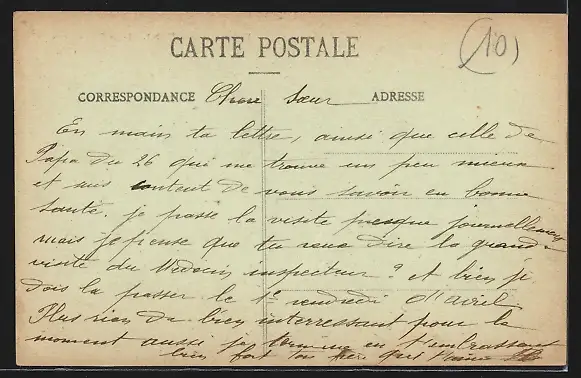 (10)
CARTE POSTALE
CORRESPONDANCE Chère Sœur ADRESSE
En main ta lettre, ainsi que celle de
Papa du 26 qui me trouve un peu mieux
et suis content de vous savoir en bonne
santé. je passe la visite presque journellement
mais je pense que tu veux dire la grande
visite du Médecin inspecteur ? et bien je
dois la passer le 1e vendredi d'avril
Plus rien de bien interressant pour le
moment aussi je termine en t'embrassant
bien fort ton qui t'aime